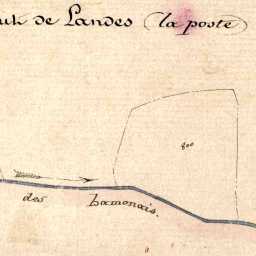 de Landes (la poste)
800
des Lamonais.